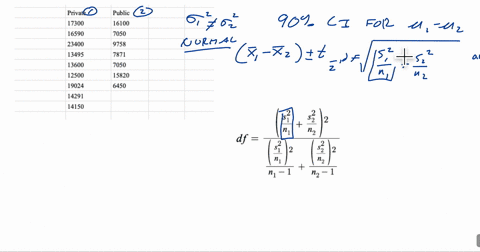 Private ① Public ②
17300 16100
16590 7050
23400 9758
13495 7871
13600 7050
12500 15820
19024 6450
14291
14150
σ₁² ≠ σ₂²
NORMAL
90% CI FOR μ₁-μ₂
(x̄₁-x̄₂) ± t_{-/2, df} √(s₁²/n₁ + s₂²/n₂)
df = (s₁²/n₁ + s₂²/n₂)2 / ((s₁²/n₁)2/(n₁-1) + (s₂²/n₂)2/(n₂-1))